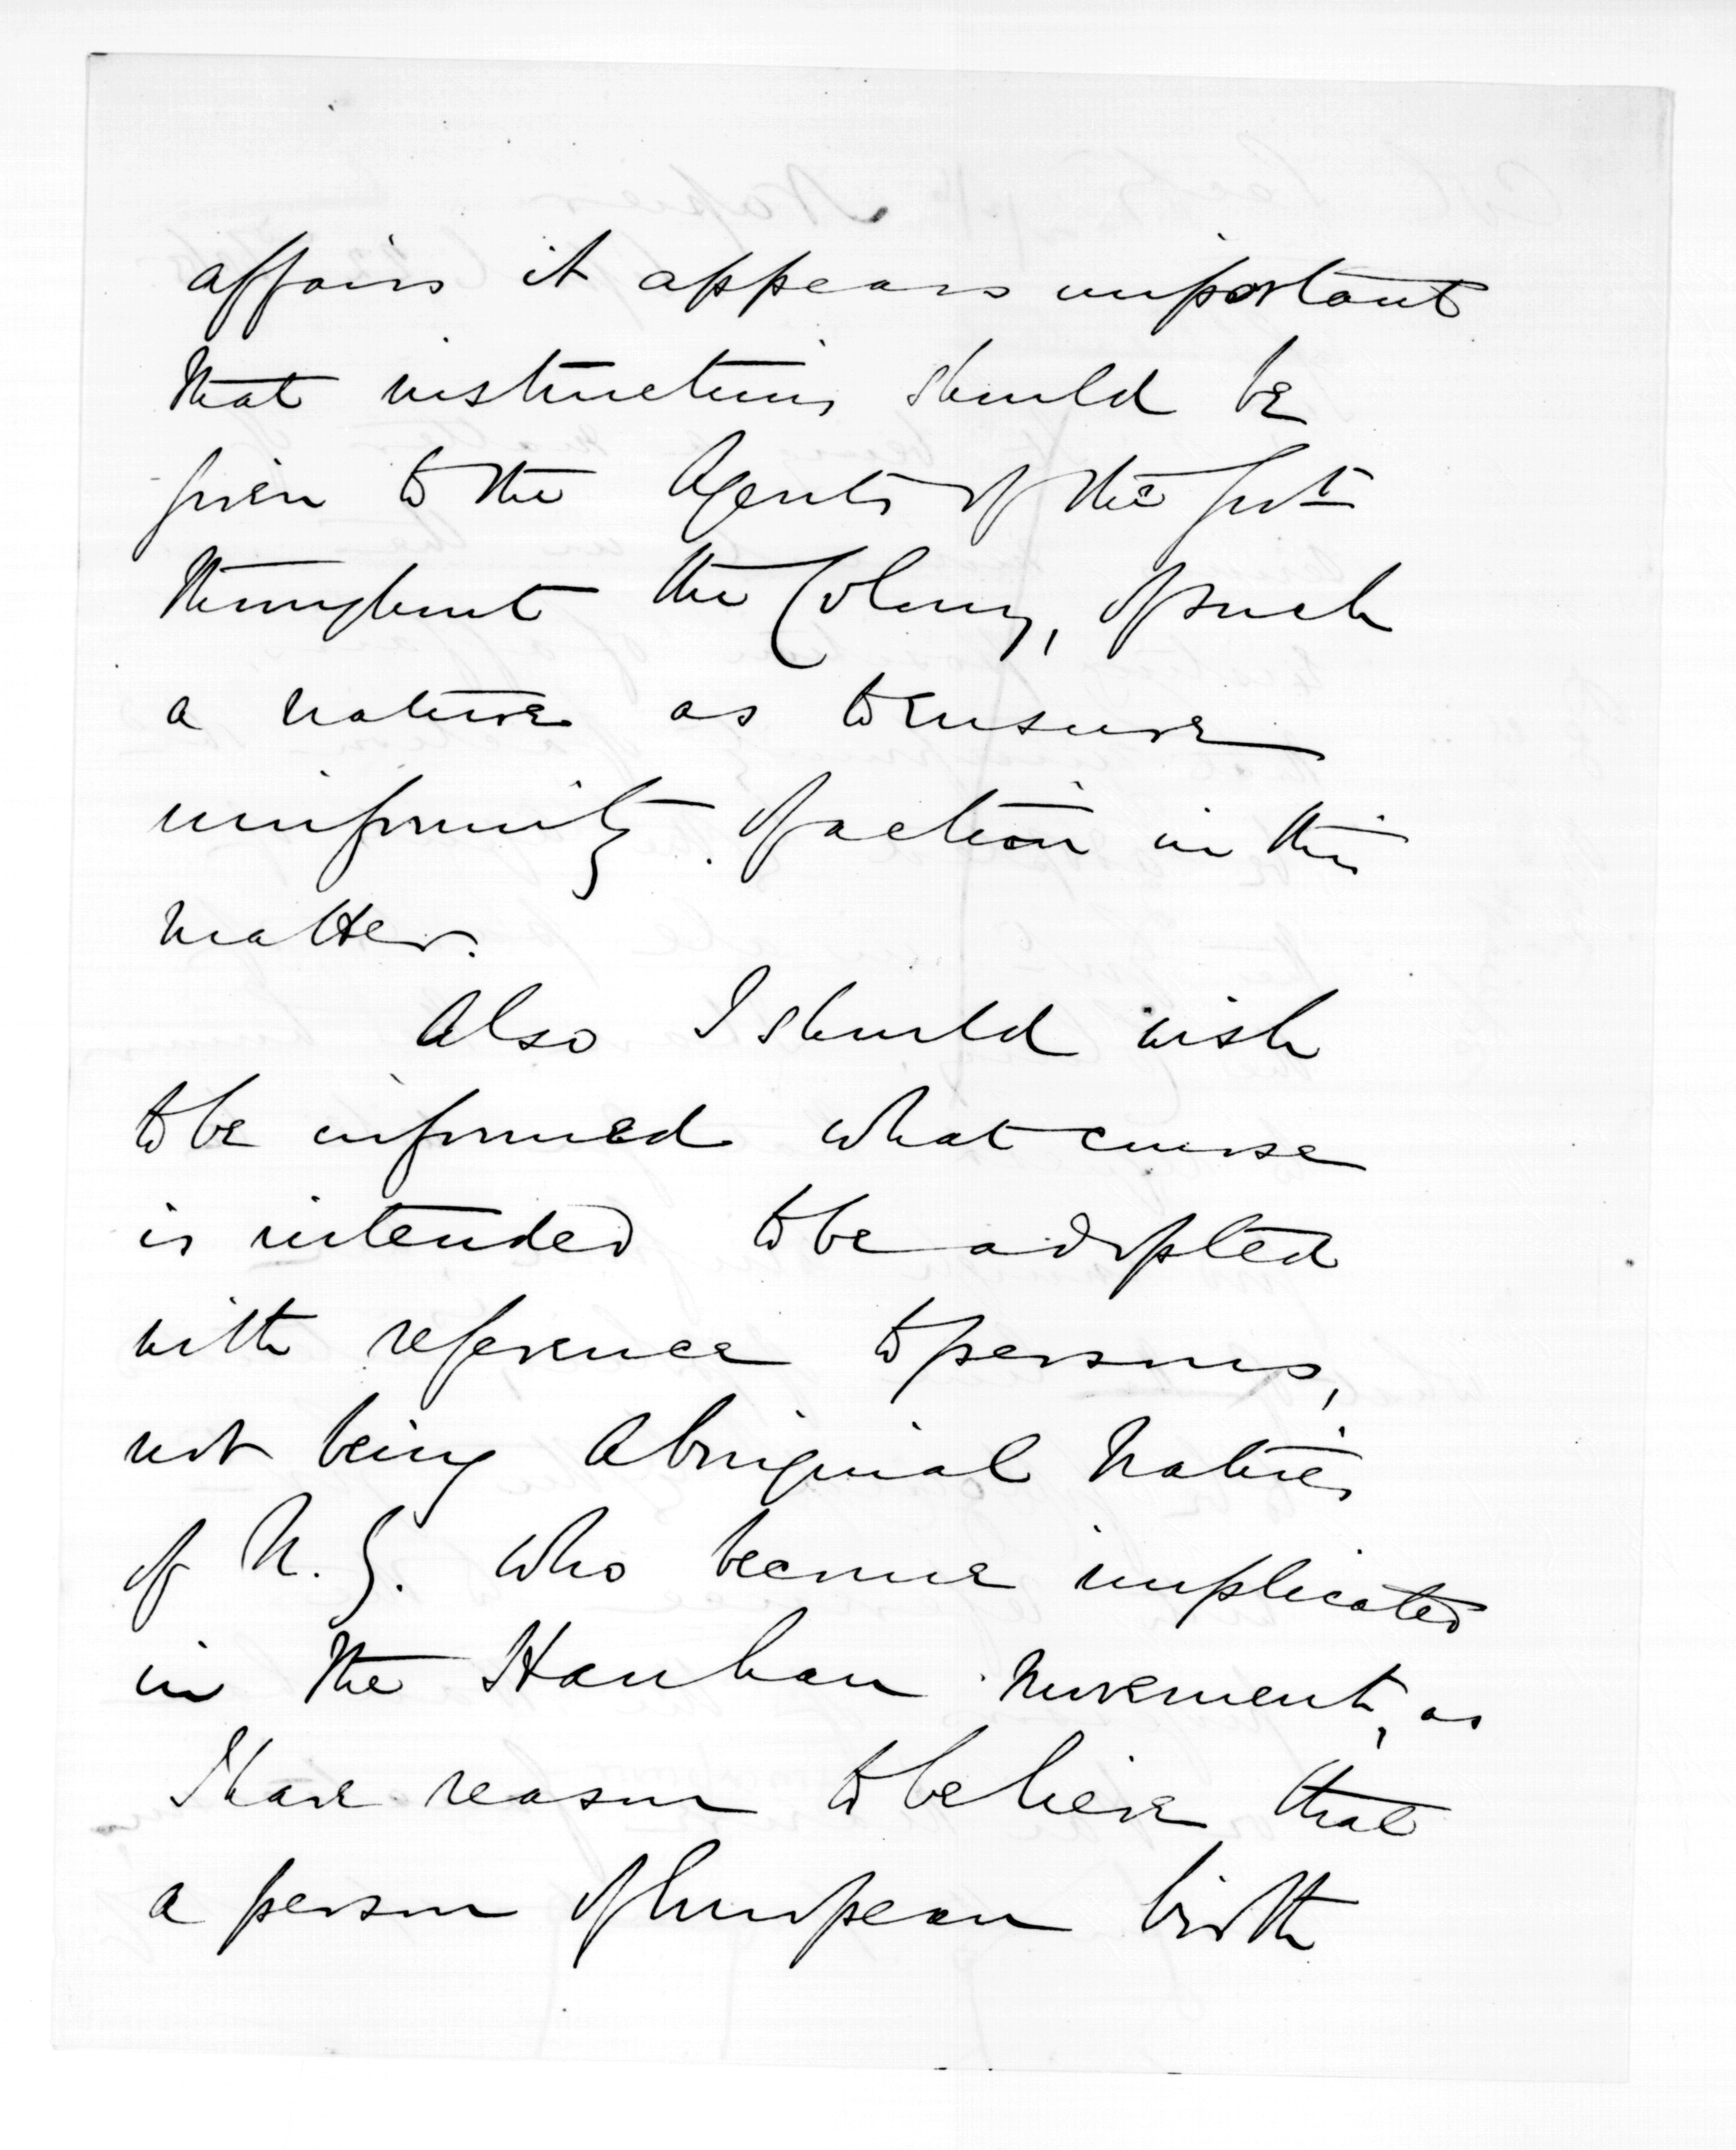 affairs it appears important
that instructions should be
given to the Agents of the Govt
throughout the Colony, of such
a nature as to ensure
uniformity of action in this
matter.
Also I should wish
to be informed what course
is intended to be adopted
with reference to persons,
not being Aboriginal Natives
of N. Z. who become implicated
in the Hauhau movement, as
I have reason to believe that
a person of European birth